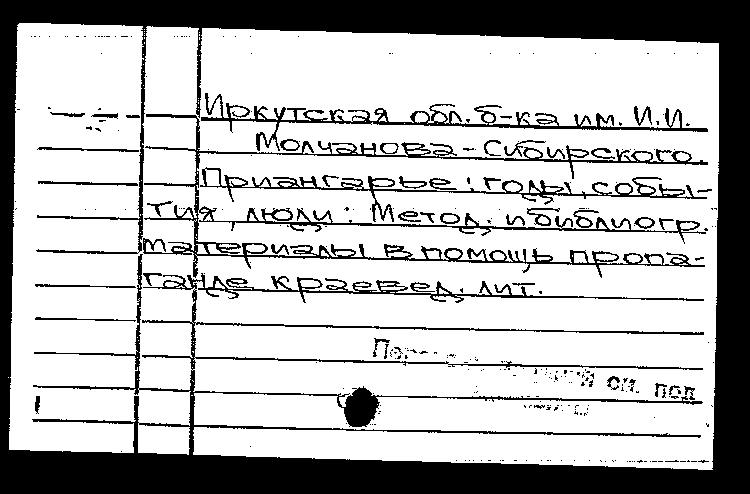 Иркутская обл. б-ка им. И.И.
Молчанова-Сибирского.
Приангарье: годы, собы-
тия, люди: Метод. и библиогр.
материалы в помощь пропа-
ганде краевед. лит.
см. под